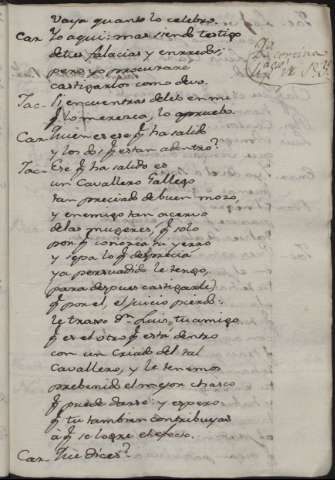 Vaya quanto lo celebro.
Car. Yo aqui: mas siendo testigo
de tus falacias y enrredos;
pero yo procurare
castigarlos como devo.
Jac. Si encuentras delito en mi
q.e lo merezca, lo apruebo.
Car. Quien es ese q.e ha salido
y los dos q.e estan adentro?
Jac. Ese q.e ha salido es
un Cavallero Gallego
tan preciado de buen mozo,
y enemigo tan acervo
de las mugeres, q.e solo
por q.e conozca su yerro
y sepa lo q.e desprecia
ya persuadido le tengo,
para despues castigarle,
q.e por el, el juicio pierdo:
le traxo D.n Luis, tu amigo
q.e es el otro q.e está dentro
con un Criado del tal
Cavallero, y le tenemos
prebenido el mejor chasco
q.e puede darse: y espero
q.e tu tambien contribuyas
à q.e se logre el efecto.
Car. Que dices?